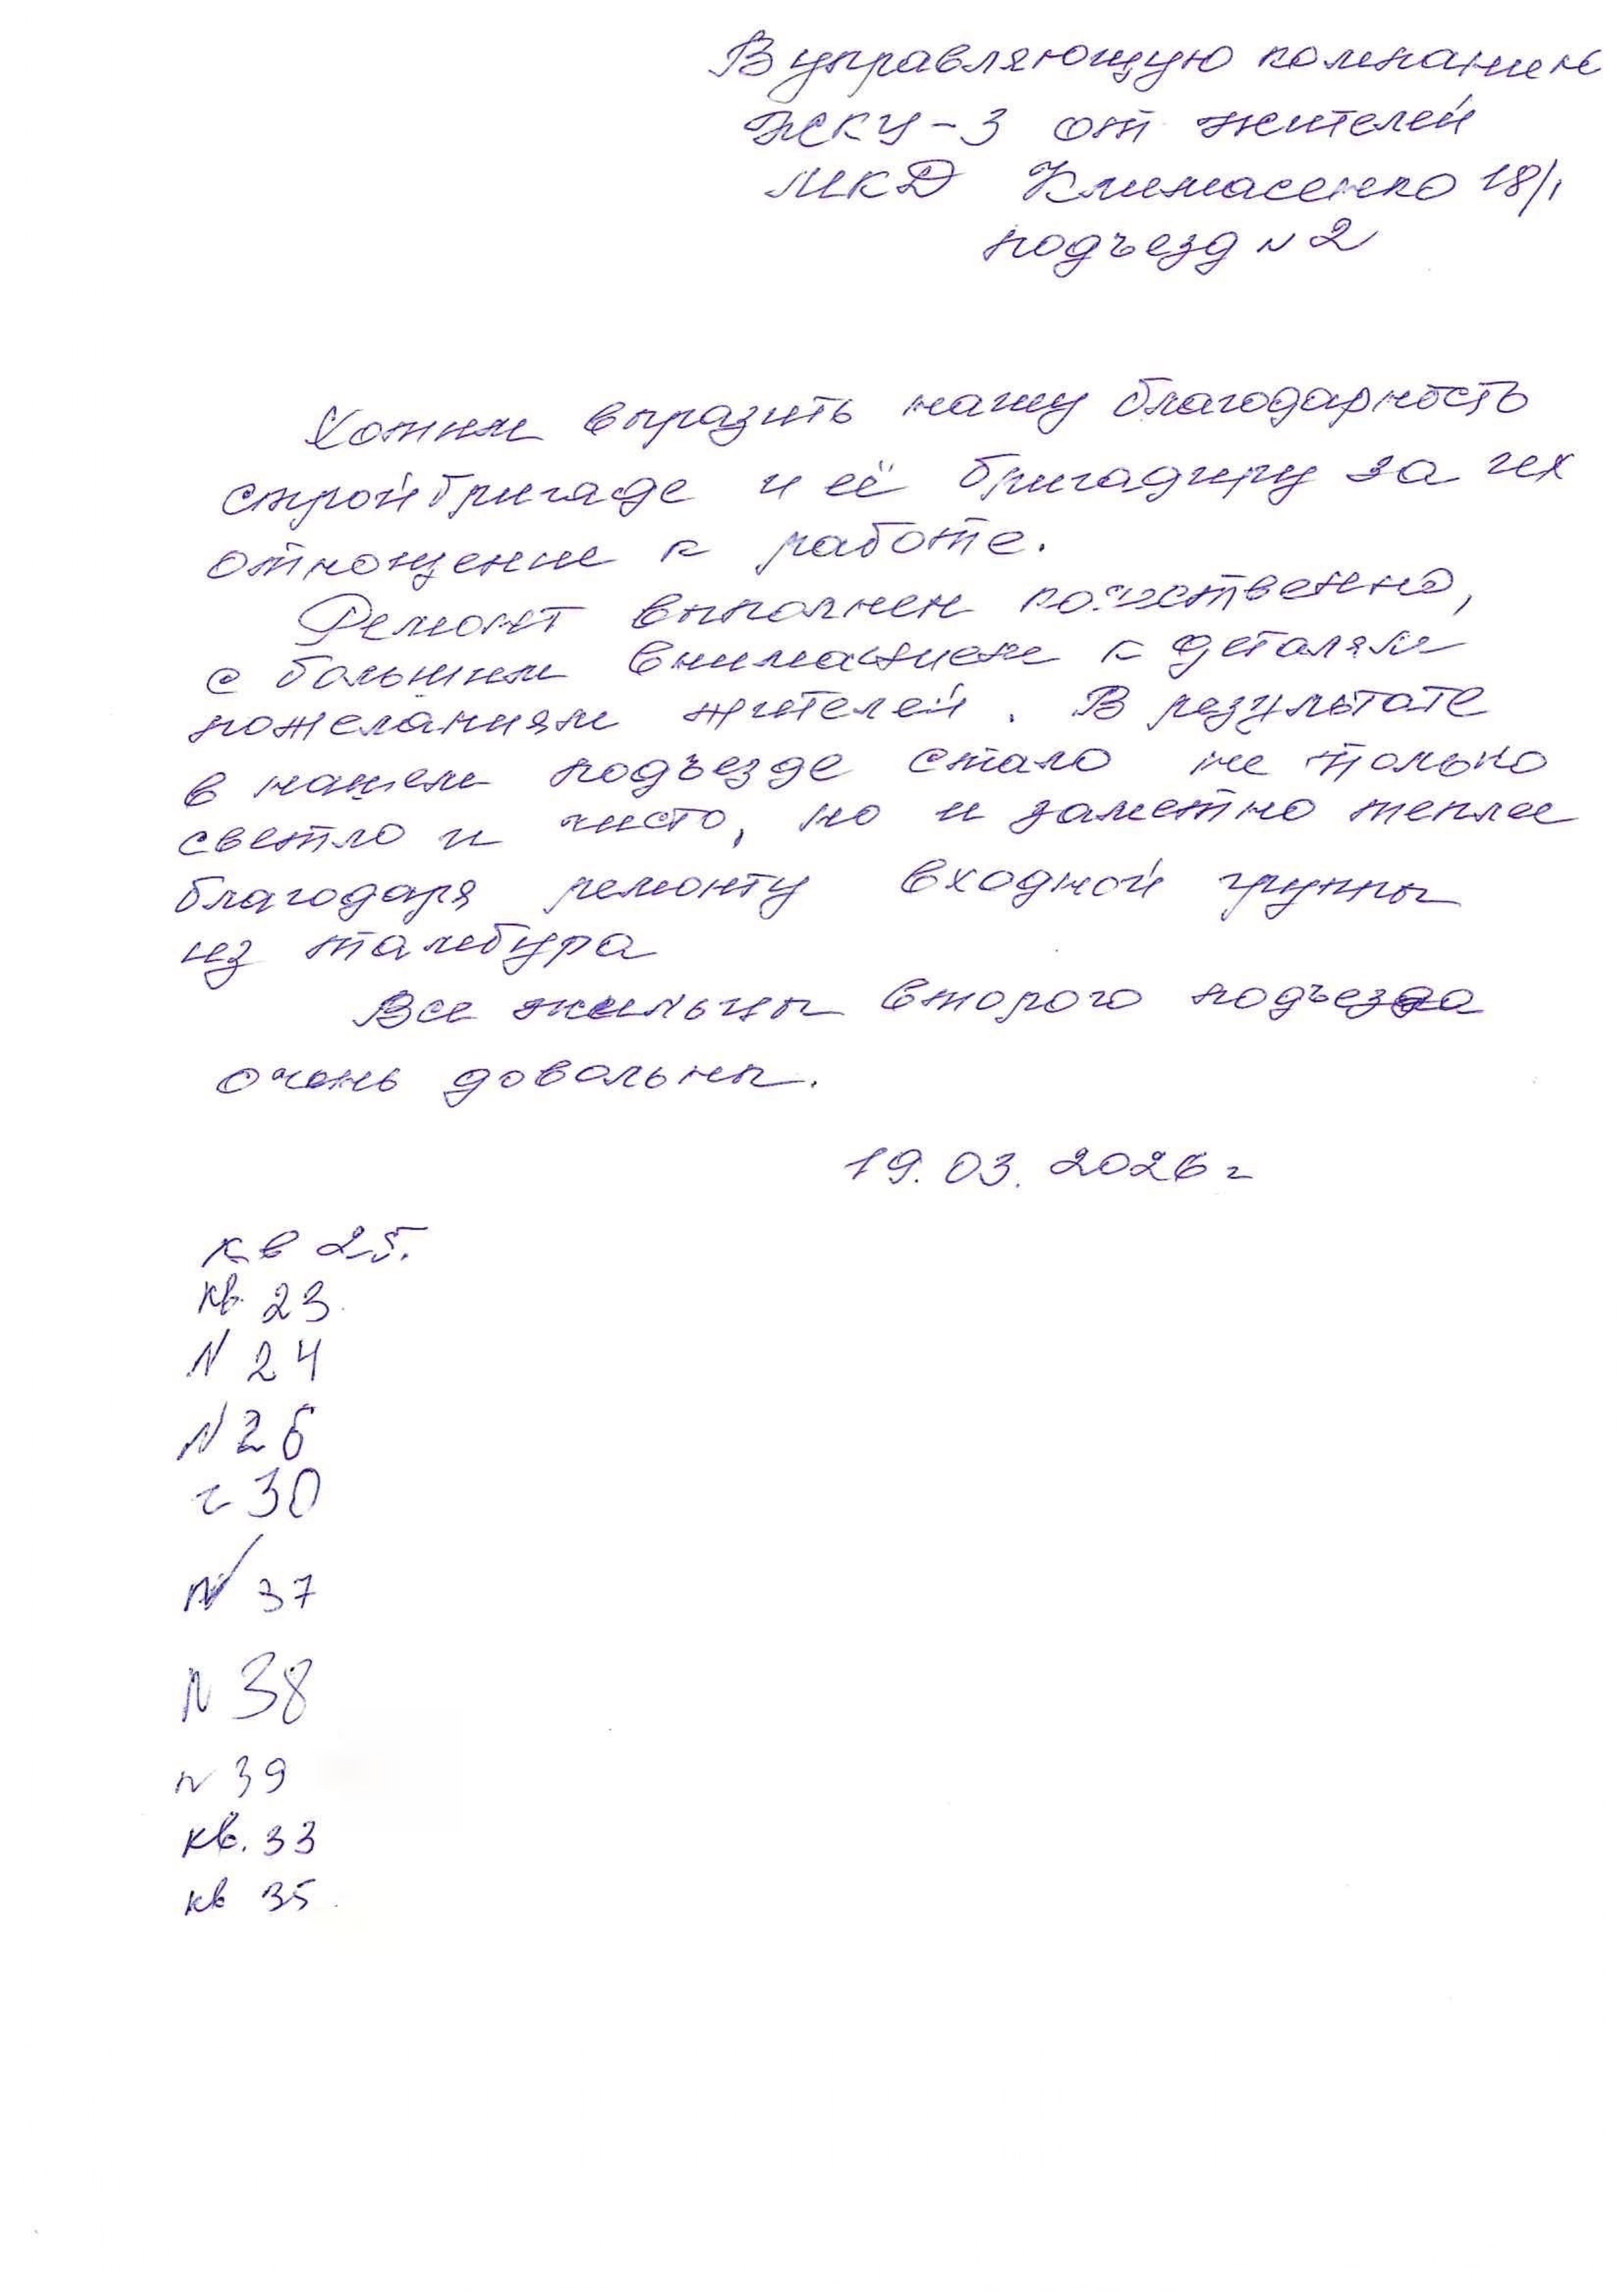 В управляющую компанию
ЖКУ-3 от жителей
МКД Климасенко 18/1
подъезд N2
Хотим выразить нашу благодарность
стройбригаде и её бригадиру за их
отношение к работе.
Ремонт выполнен качественно,
с большим вниманием к деталям
пожеланиям жителей. В результате
в нашем подъезде стало не только
светло и чисто, но и заметно теплее
благодаря ремонту входной группы
из тамбура
Все жильцы второго подъезда
очень довольны.
19.03.2026 г
кв 25.
кв. 23.
N 24
N 26
30
N 37
N 38
N 39
кв. 33
кв 35.